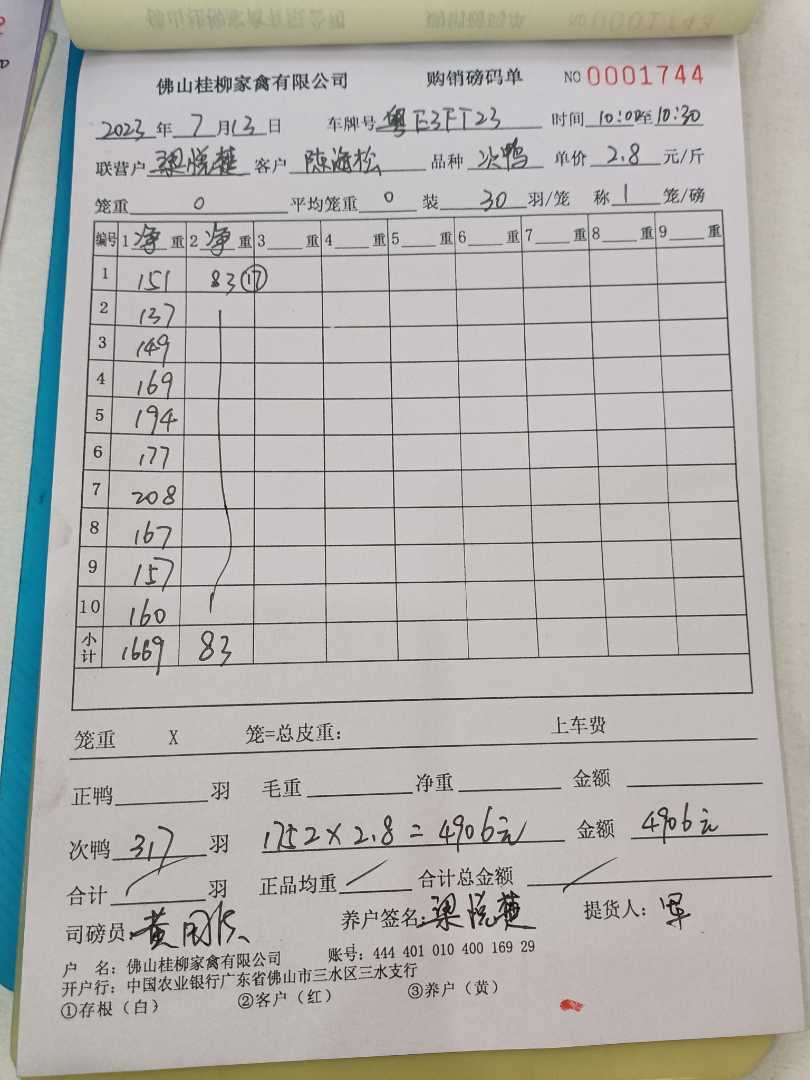 佛山桂柳家禽有限公司 购销磅码单 NO 0001744
2023年7月13日 车牌号 粤E3FT23 时间 10:00至10:30
联营户 梁悦楚 客户 陈海松 品种 次鸭 单价 2.8 元/斤
笼重 0 平均笼重 0 装 30 羽/笼 称 1 笼/磅
编号 1净重 2净重 3 重 4 重 5 重 6 重 7 重 8 重 9 重
1 151 83 ⑰
2 137
3 149
4 169
5 194
6 177
7 208
8 167
9 157
10 160
小计 1669 83
笼重 X 笼=总皮重: 上车费
正鸭 羽 毛重 净重 金额
次鸭 317 羽 1752×2.8=4906元 金额 4906元
合计 / 羽 正品均重 / 合计总金额 /
司磅员: 黄 养户签名: 梁悦楚 提货人:
户 名: 佛山桂柳家禽有限公司 账号: 444 401 010 400 169 29
开户行: 中国农业银行广东省佛山市三水区三水支行
①存根(白) ②客户(红) ③养户(黄)